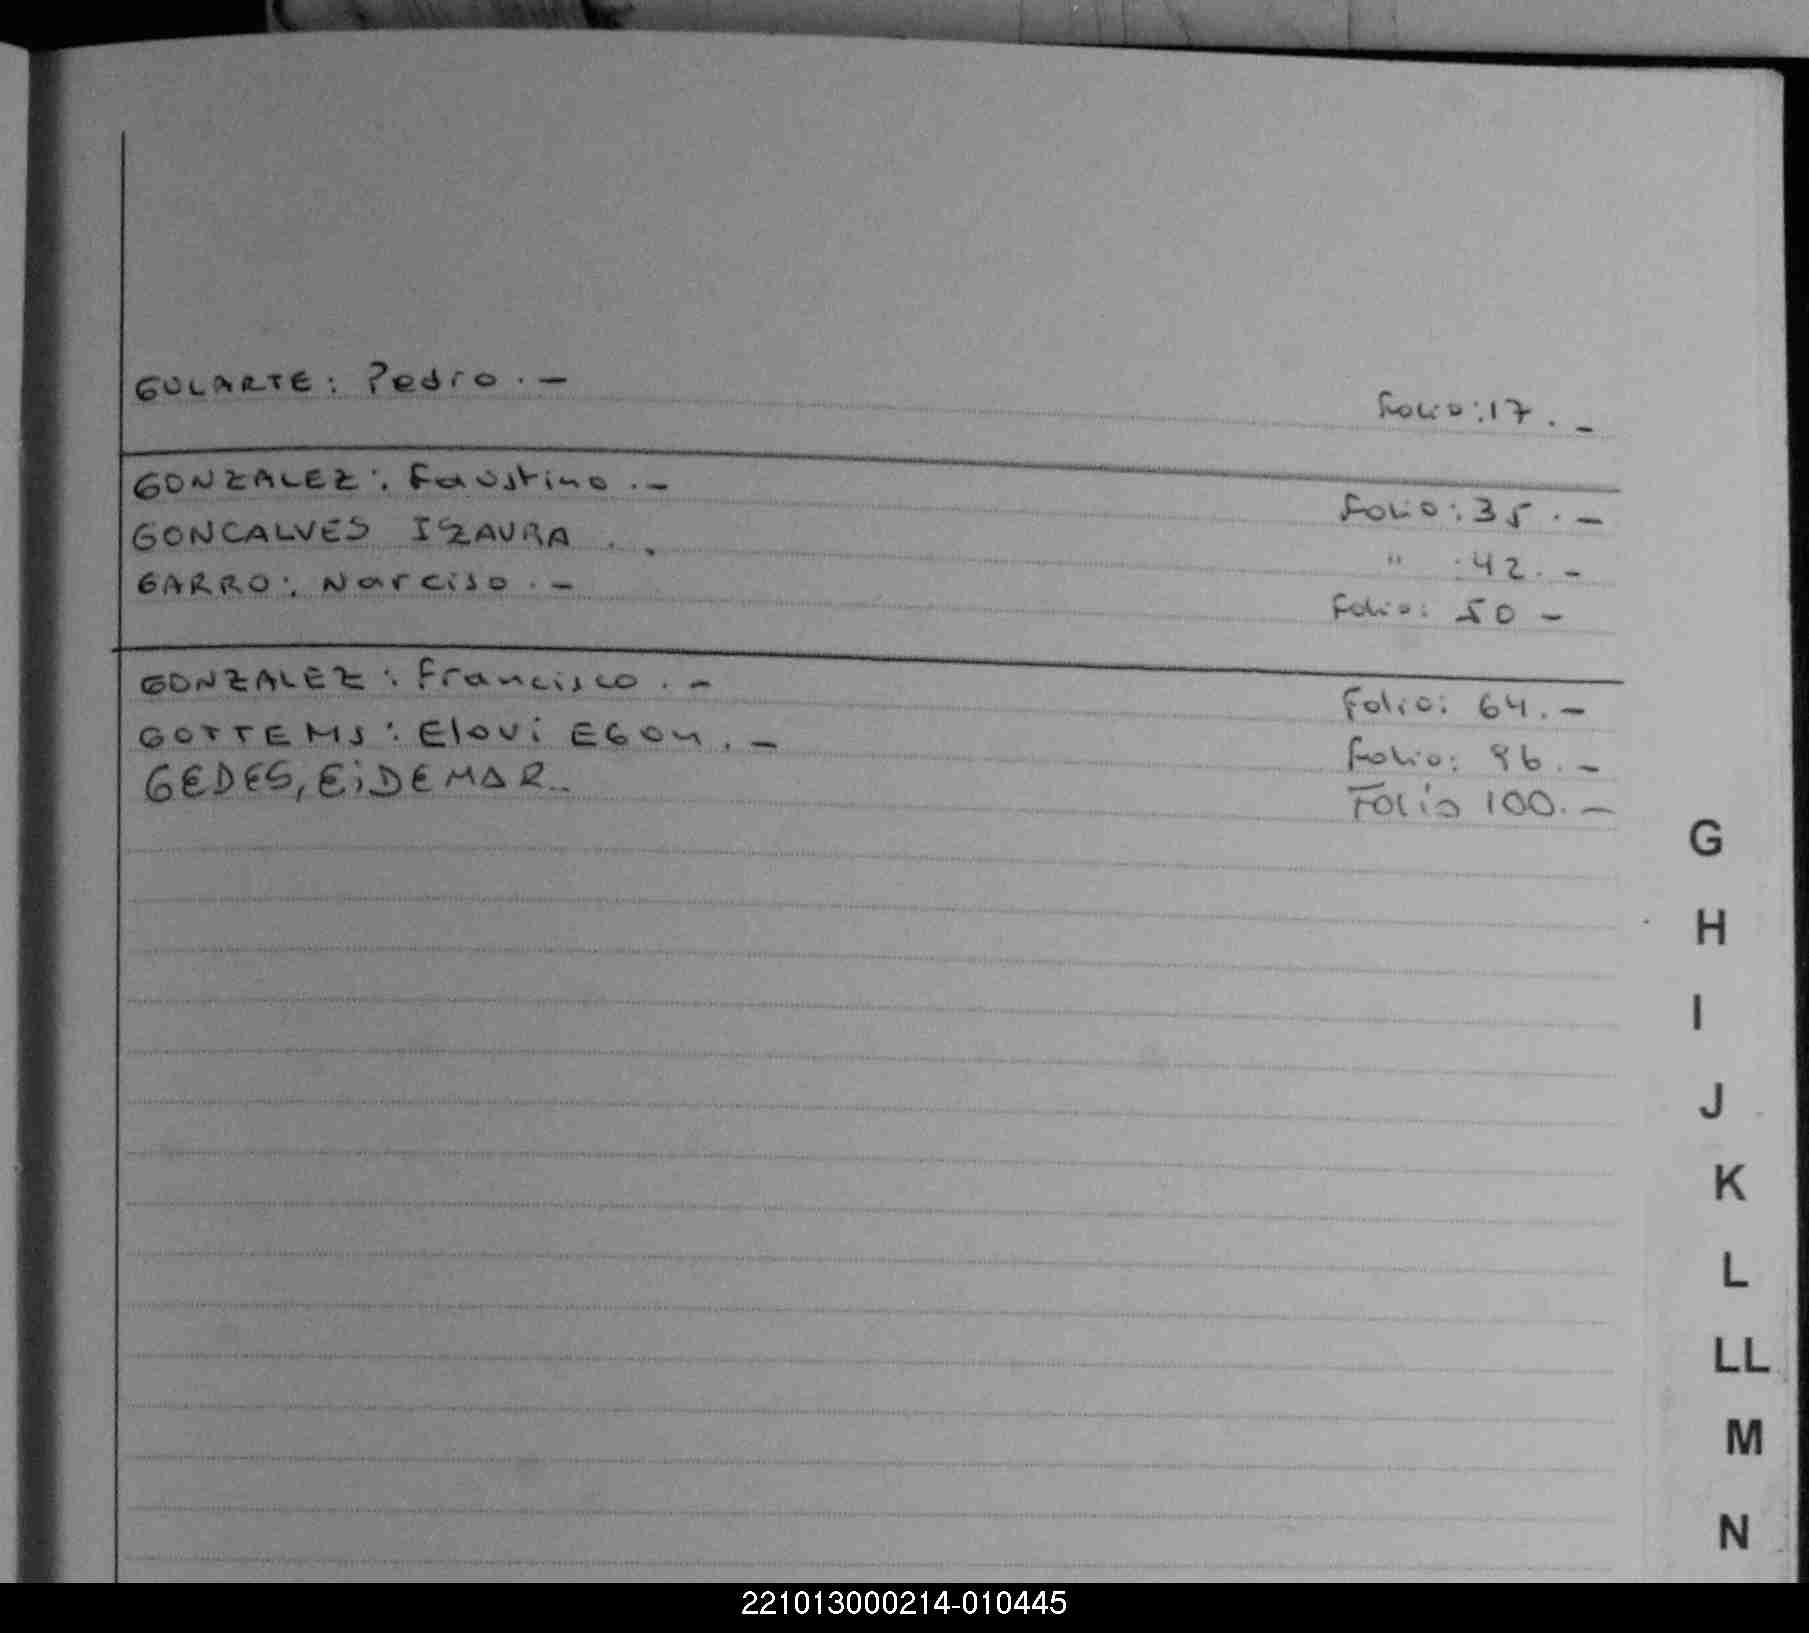 GULARTE: Pedro.- Folio:17.-
GONZALEZ: Faustino.- Folio:35.-
GONCALVES IZAURA.. " :42.-
GARRO: Narciso.- Folio: 50-
GONZALEZ: Francisco.- Folio: 64.-
GOTTEMS: Elovi EGON.- Folio: 96.-
GEDES, EiDEMAR.. Folio 100.-
G
H
I
J
K
L
LL
M
N
221013000214-010445